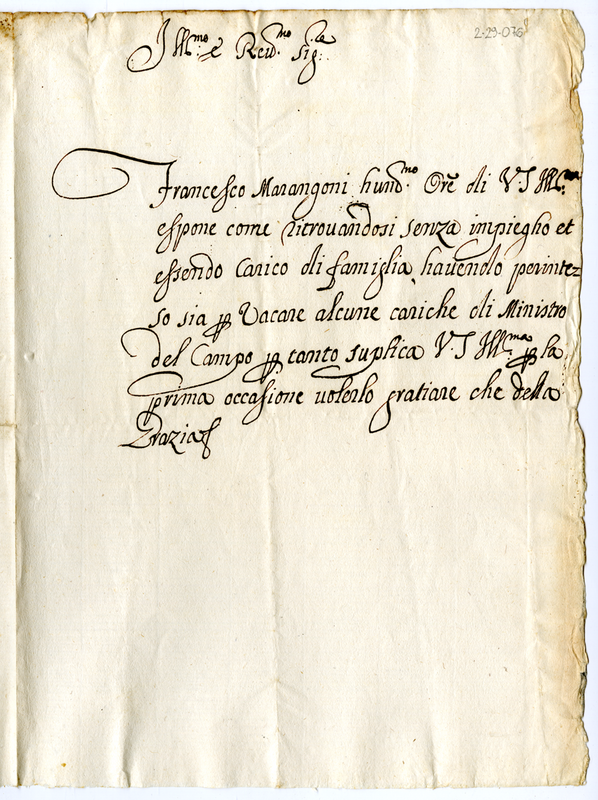 2-29-076
Ill.mo e Reu.mo Sig.re
Francesco Marangoni humil.mo Ore di V S Ill.ma
espone come ritrouandosi senza impiegho et
essendo Carico di famiglia, hauendo perintez
so sia p Vacare alcune cariche di Ministro
del Campo p tanto suplica V.S Ill.ma p la
prima occasione uolerlo gratiare che della
Grazia